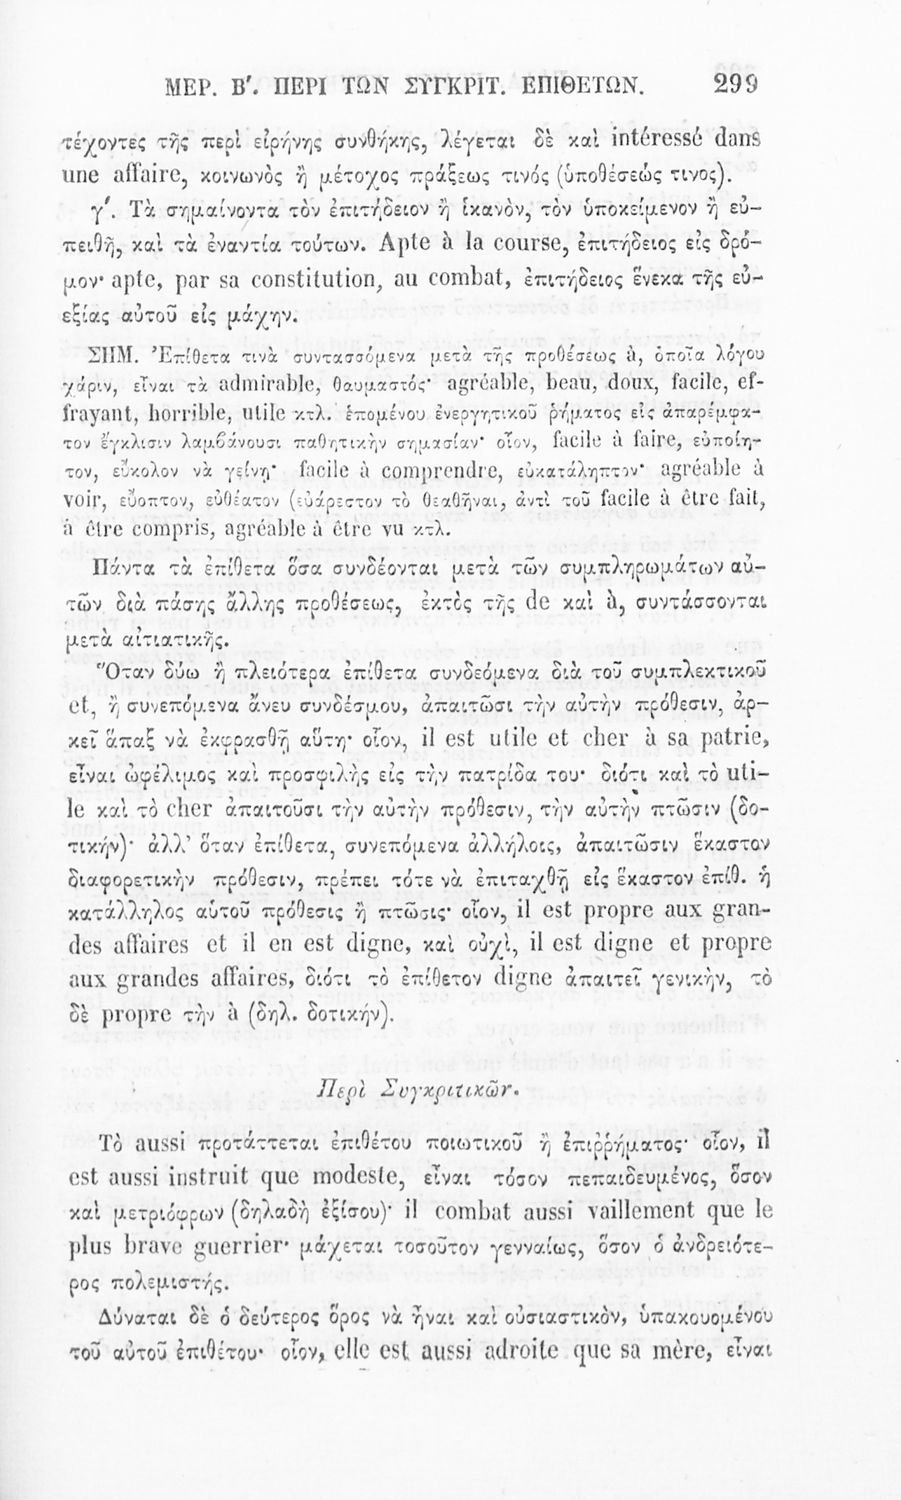 ΜΕΡ. Β'. ΠΕΡΙ ΤΩΝ ΣΥΓΚΡΙΤ. ΕΠΙΘΕΤΩΝ. 299
τέχοντες τῆς περὶ εἰρήνης συνθήκης, λέγεται δὲ καὶ intéressé dans
une affaire, κοινωνὸς ἢ μέτοχος πράξεως τινός (ὑποθέσεώς τινος).
γ'. Τὰ σημαίνοντα τὸν ἐπιτήδειον ἢ ἱκανὸν, τὸν ὑποκείμενον ἢ εὐ-
πειθῆ, καὶ τὰ ἐναντία τούτων. Apte à la course, ἐπιτήδειος εἰς δρό-
μον· apte, par sa constitution, au combat, ἐπιτήδειος ἕνεκα τῆς εὐ-
εξίας αὐτοῦ εἰς μάχην.
ΣΗΜ. Ἐπίθετα τινὰ συντασσόμενα μετὰ τῆς προθέσεως à, ὁποῖα λόγου
χάριν, εἶναι τὰ admirable, θαυμαστός· agréable, beau, doux, facile, ef-
frayant, horrible, utile κτλ. ἑπομένου ἐνεργητικοῦ ῥήματος εἰς ἀπαρέμφα-
τον ἔγκλισιν λαμβάνουσι παθητικὴν σημασίαν· οἷον, facile à faire, εὐποίη-
τον, εὔκολον νὰ γείνῃ· facile à comprendre, εὐκατάληπτον· agréable à
voir, εὔοπτον, εὐθέατον (εὐάρεστον τὸ θεαθῆναι, ἀντὶ τοῦ facile à être fait,
à être compris, agréable à être vu κτλ.
Πάντα τὰ ἐπίθετα ὅσα συνδέονται μετὰ τῶν συμπληρωμάτων αὐ-
τῶν διὰ πάσης ἄλλης προθέσεως, ἐκτὸς τῆς de καὶ à, συντάσσονται
μετὰ αἰτιατικῆς.
Ὅταν δύω ἢ πλειότερα ἐπίθετα συνδεόμενα διὰ τοῦ συμπλεκτικοῦ
et, ἢ συνεπόμενα ἄνευ συνδέσμου, ἀπαιτῶσι τὴν αὐτὴν πρόθεσιν, ἀρ-
κεῖ ἅπαξ νὰ ἐκφρασθῇ αὕτη· οἷον, il est utile et cher à sa patrie,
εἶναι ὠφέλιμος καὶ προσφιλὴς εἰς τὴν πατρίδα του· διότι καὶ τὸ uti-
le καὶ τὸ cher ἀπαιτοῦσι τὴν αὐτὴν πρόθεσιν, τὴν αὐτὴν πτῶσιν (δο-
τικήν)· ἀλλ' ὅταν ἐπίθετα, συνεπόμενα ἀλλήλοις, ἀπαιτῶσιν ἕκαστον
διαφορετικὴν πρόθεσιν, πρέπει τότε νὰ ἐπιταχθῇ εἰς ἕκαστον ἐπίθ. ἡ
κατάλληλος αὑτοῦ πρόθεσις ἢ πτῶσις· οἷον, il est propre aux gran-
des affaires et il en est digne, καὶ οὐχὶ, il est digne et propre
aux grandes affaires, διότι τὸ ἐπίθετον digne ἀπαιτεῖ γενικὴν, τὸ
δὲ propre τὴν à (δηλ. δοτικήν).
Περὶ Συγκριτικῶν.
Τὸ aussi προτάττεται ἐπιθέτου ποιωτικοῦ ἢ ἐπιῤῥήματος· οἷον, il
est aussi instruit que modeste, εἶναι τόσον πεπαιδευμένος, ὅσον
καὶ μετριόφρων (δηλαδὴ ἐξίσου)· il combat aussi vaillement que le
plus brave guerrier· μάχεται τοσοῦτον γενναίως, ὅσον ὁ ἀνδρειότε-
ρος πολεμιστής.
Δύναται δὲ ὁ δεύτερος ὅρος νὰ ἦναι καὶ οὐσιαστικὸν, ὑπακουομένου
τοῦ αὐτοῦ ἐπιθέτου· οἷον, elle est aussi adroite que sa mère, εἶναι